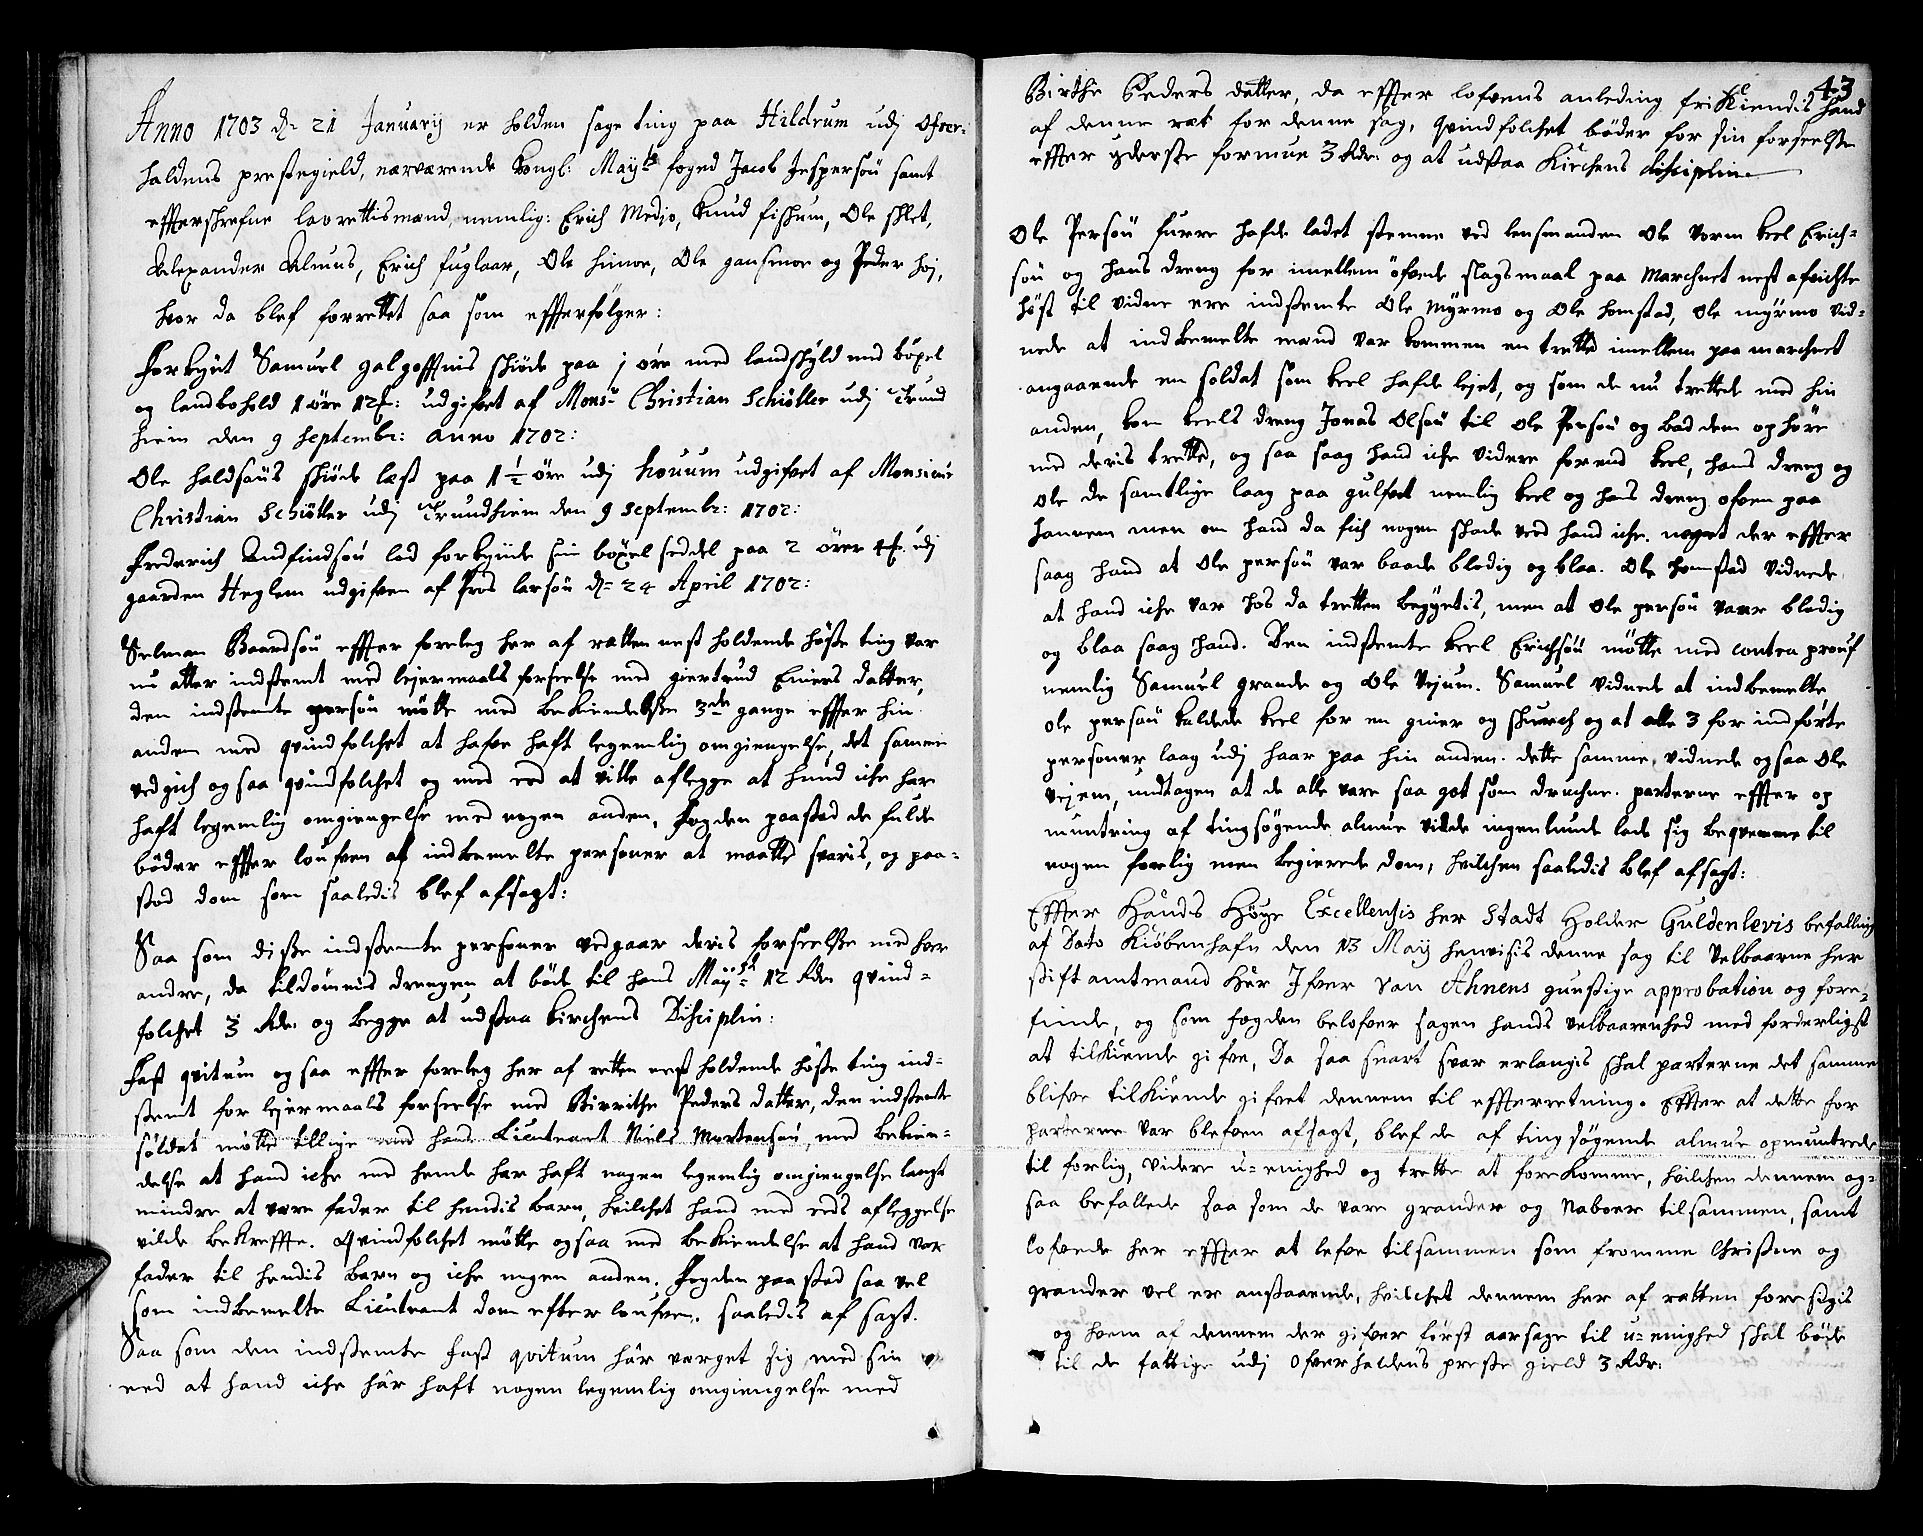 Anno 1703 d= 21 Januarij er holden sage ting paa Hildrum udj Ofver-
haldens prestegield, nærværende Kongl: Mayts foged Jacob Jespersøn samt
effterschrefne laurettismænd, nemlig: Erich Medjo, Knud fischum, Ole schlet,
Alexander Almus, Erich fuglaar, Ole himoe, Ole gansmoe og Peder høj,
hvor da blef forrettet saa som effterfølger:
Forkynt Samuel galgofftnis schiøde paa j øre med landschyld med böxel
og landbohold 1 øre 12 f: udgifvet af Monsr Christian Schiøller udj Trund
hiem den 9 Septembr: anno 1702:
Ole haldsøns schiøde læst paa 1 1/2 øre udj houum udgifvet af Monsieur
Christian Schiøller udj Trundhiem den 9 Septembr: 1702:
Frederich Andfindsøn lod forkynde sin böxel seddel paa 2 ører 4 f. udj
gaarden Heglem udgifven af Pros larsøn d= 24 April 1702:
Selmer Baardsøn effter foreleg her af retten nest holdende høste ting var
nu atter indstemt med lejermaals forseelse med giertrud Einers datter,
den indstemte persøn møtte med bekiendelsse 3de gange effter hin
anden med qvindfolchet at hafve haft legemlig omgiengelse, det samme
vedgich og saa qvindfolchet og med eed at ville aflegge at hund iche har
haft legemlig omgiengelse med nogen anden, fogden paastod de fulde
bøder effter loufven af indbemelte personer at maatte svaris, og paa-
stod dom som saaledis blef afsagt:
Saa som disse indstemte personer vedgaar deris forseelsse med hver
andre, da tildømmis drengen at bøde til hans Mayst= 12 Rdr qvind-
folchet 3 Rdr: og begge at udstaa kirchens Disciplin:
Fast qvitum og saa effter foreleg her af retten nest holdende høste ting ind-
stemt for lejermaals forseelse med Birrithe Peders datter, den indstemte
soldat møtte tillige med hans Lieutenant Niels Mortensøn, med bekien-
delse at hand iche med hende har haft nogen legemlig omgiengelse langt
mindre at være fader til hendis barn, hvilchet hand med eeds afleggelse
vilde bekreffte. Qvindfolchet møtte ogsaa med bekiendelse at hand var
fader til hendis barn og iche nogen anden. Fogden paastod saa vel
som indbemelte Lieutenant dom efter loufven, saaledis af sagt.
Saa som den indstemte fast qvitum här værget sig med sin
eed at hand iche här haft nogen legemlig omgiengelse med
43
Birthe Peders datter, da effter lofvens anleding frj Kiendis hand
af denne ræt for denne sag, qvindfolchet bøder for sin forseelsse
effter yderste formue 3 Rdr: og at udstaa Kirchens disciplin
Ole Persøn furre hafde ladet stemme ved lensmanden Ole vorm Keel Erich-
søn og hans dreng for imellem øfvede slagsmaal paa marchnet nest afvichte
høst til vidne ere indstemte Ole Myrmo og Ole homstad, Ole myrmo vid-
nede at indbemelte mænd var kommen en trette imellem paa marchnet
angaaende en soldat som Keel hafde lejet, og som de nu trettede med hin
anden, kom Keels dreng Jonas Olsøn til Ole Persøn og bad dem ophøre
med deris trette, og saa saag hand iche videre forend Keel, hans dreng og
Ole de samtlige laag paa gulfvet nemlig Keel og hans dreng ofven paa
hannem men om hand da fich nogen schade veed hand iche. noget der effter
saag hand at Ole persøn var baade blodig og blaa. Ole homstad vidnede
at hand iche var hos da tretten begyntis, men at Ole persøn vaar blodig
og blaa saag hand. Den indstemte Keel Erichsøn møtte med contra prouf
nemlig Samuel grande og Ole Vejum. Samuel vidnede at indbemelte
Ole persøn kaldede Keel for en gnier og schurch og at alle 3 for indførte
personer laag udj haar paa hin anden. dette samme vidnede ogsaa Ole
vejem, undtagen at de alle vare saa got som druchne. parterne effter op
muntring af tingsøgende almue vilde ingenlunde lade sig beqvemme til
nogen forlig men begierede dom, hvilchen saaledis blef afsagt:
Effter Hands Høye Excellensis her Stadt Holder Guldenlevis befalling
af Dato Kiøbenhafn den 13 May henvisis denne sag til Velbaarne her
stiftamtmand Her Ifver von Ahnens gunstige approbation og fore-
finde, og som fogden belofver sagen hands velbaarenhed med forderligst
at tilkiende gifve, Da saa snart svar erlangis schal parterne det samme
blifve tilkiende gifvet dennem til effterretning. Effter at dette for
parterne var blefven afsagt, blef de af tingsøgende almue opmuntrede
til forlig, videre u=enighed og trette at forekomme, hvilchen dennem og-
saa befallede saa som de vare grander og Naboer tilsammen, samt
lofvede her effter at lefve tilsammen som fromme Christne og
grander vel er anstaaende, hvilchet dennem her af rætten foresigis
og hvem af dennem der gifver først aarsage til u=enighed schal bøde
til de fattige udj Ofverhaldens prestegield 3 Rdr: